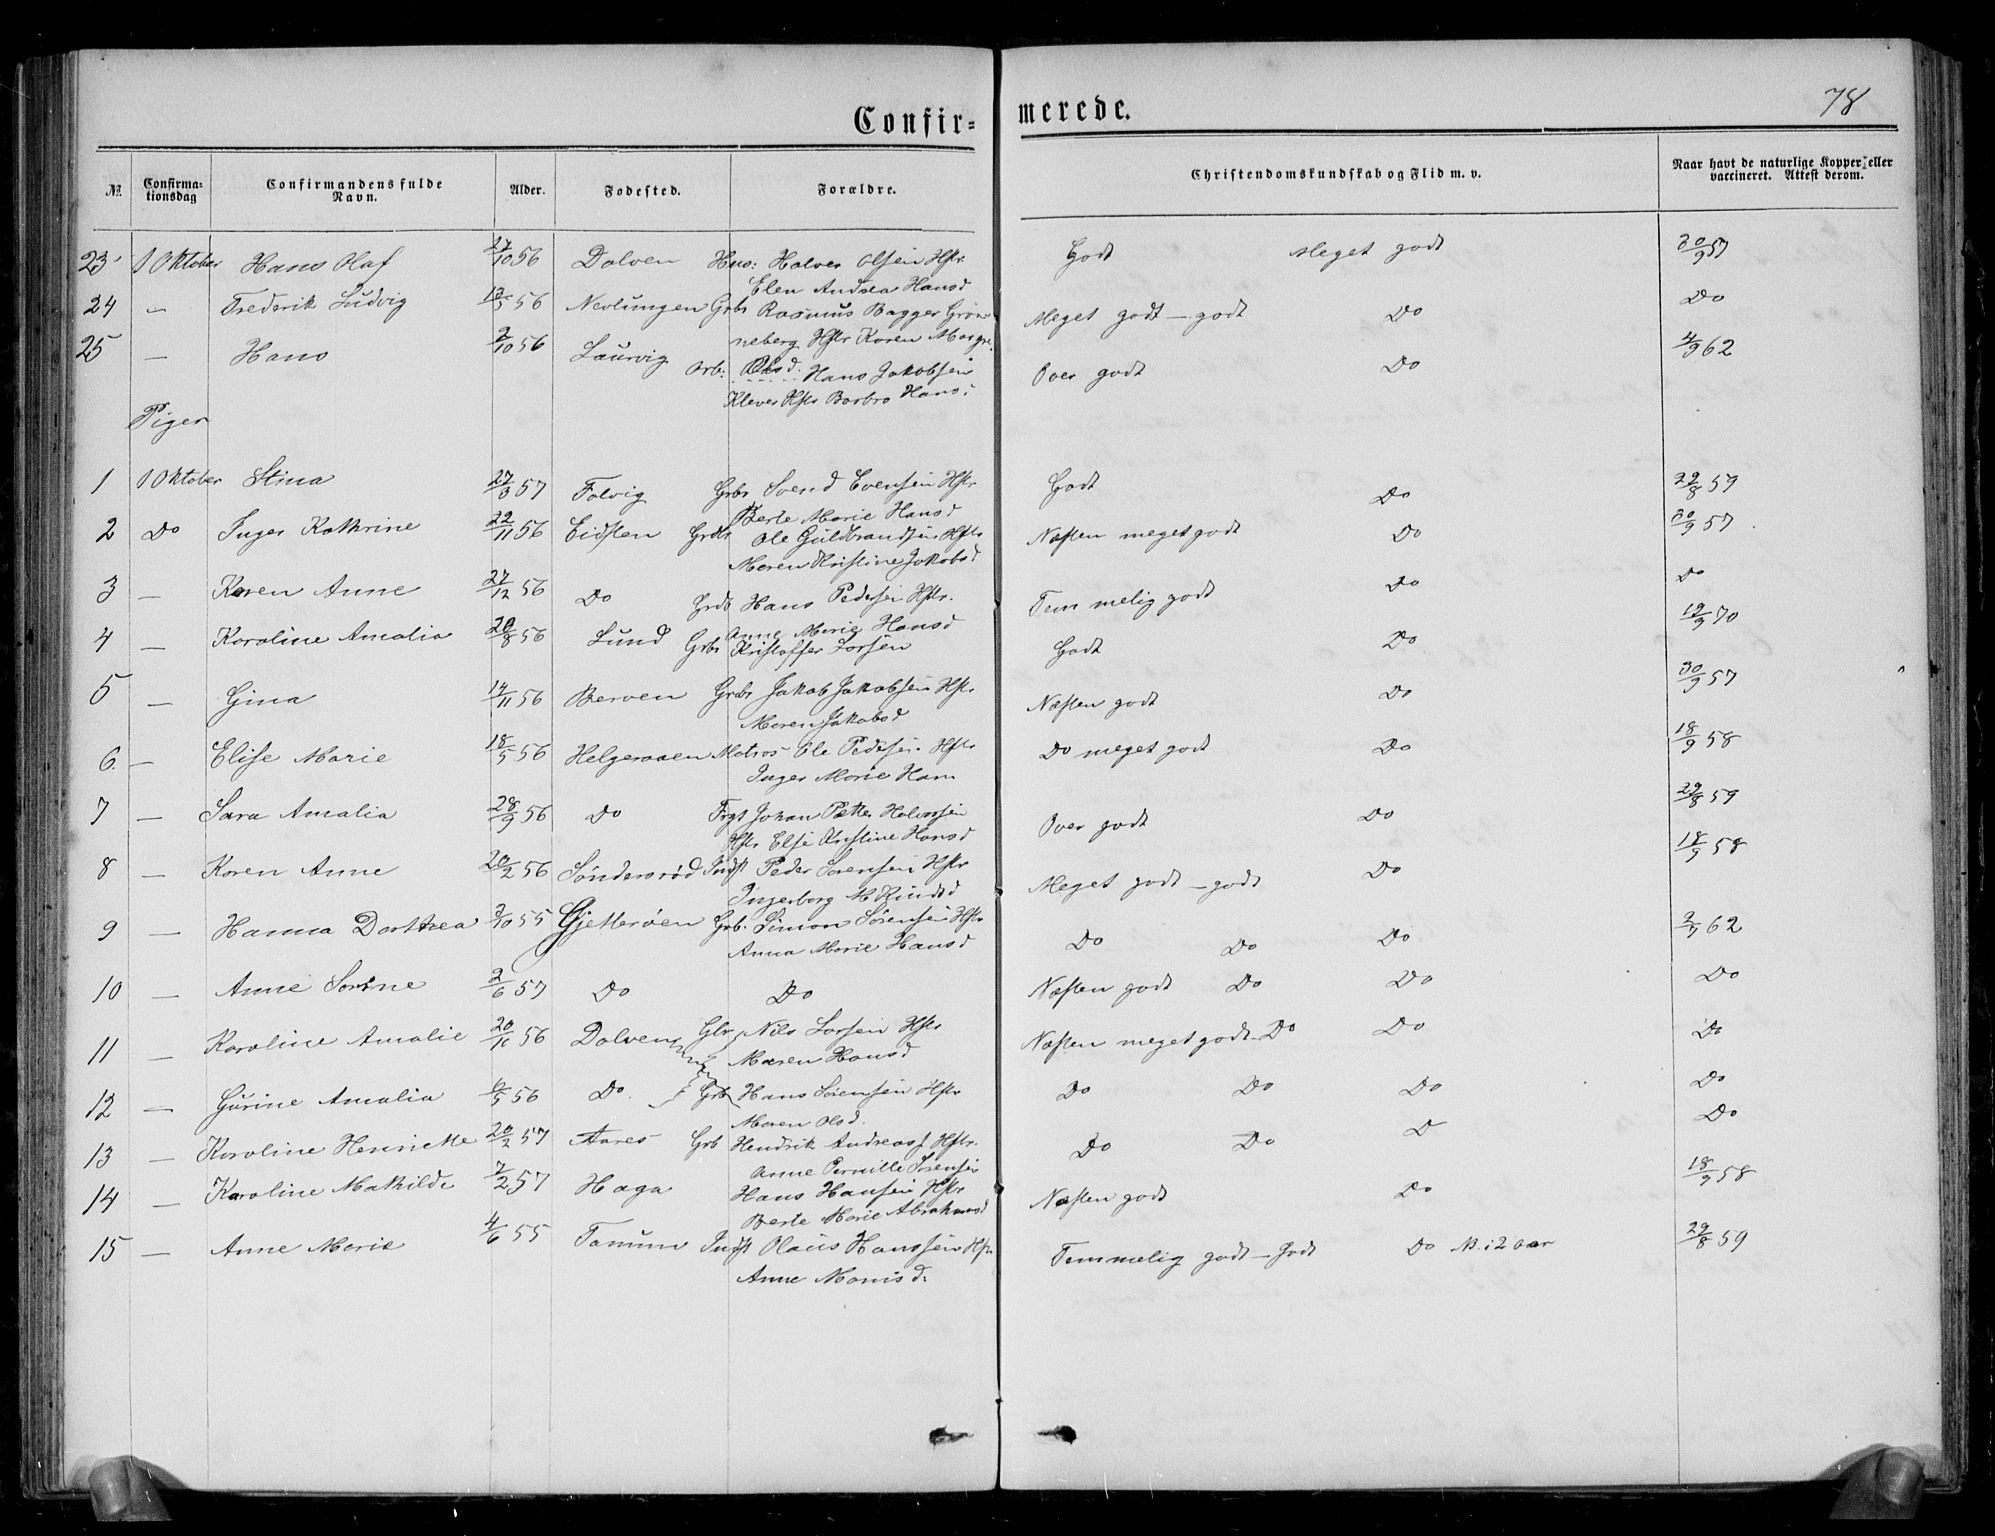 Confir-
merede.
78
No.
Confirma-
tionsdag
Confirmandens fulde
Navn.
Alder.
Fødested.
Forældre.
Christendomskundskab og Flid m. v.
Naar havt de naturlige Kopper eller
vaccineret. Attest derom.
23 1 Oktober Hans Olaf 27/10 56 Dolven Hus: Halvor Olsen Hstr Godt Meget godt 30/9 57
Elen Andrea Hansd
24 – Frederik Ludvig 13/5 56 Nevlungen Grbr Rasmus Bagger Grøn Meget godt – godt Do Do
25 — Hans 2/10 56 Laurvig neberg Hstr Karen Margr. 4/9 62
Arb: Olsd. Hans Jakobsen Over godt Do
Klever Hstr Barbro Hans:
Piger
1 1 Oktober Stina 27/3 57 Folvig Grbr Svend Evensen Hstr Godt Do 29/8 59
Berte Marie Hansd
2 Do Inger Kathrine 22/11 56 Eidsten Grdbr Ole Guldbrandsen Hstr Næsten meget godt Do 30/9 57
Maren Kristine Jakobsd
3 — Karen Anne 27/12 56 Do Grdb Hans Pedersen Hstr. Temmelig godt Do Do
Anne Marie Hansd
4 — Karoline Amalia 20/8 56 Lund Grbr Kristoffer Larsen Godt Do 19/9 70
5 — Gina 14/11 56 Berven Grbr Jakob Jakobsen Hstr Næsten godt Do 30/9 57
Maren Jakobsd
6. — Elise Marie 18/5 56 Helgeraaen Matros Ole Pedersen Hstr Do meget godt Do 18/9 58
Inger Marie Hans
7 — Sara Amalia 28/9 56 Do Frgt Johan Petter Halvorsen Over godt Do 29/8 59
Hstr Else Kristine Hansd
8 — Karen Anne 20/2 56 Søndersrød Indst Peder Sørensen Hstr Meget godt – godt Do 18/9 58
Ingeborg M Knudsd
9 — Hanna Dorthea 3/10 55 Gjetterøen Grb. Simon Sørensen Hstr Do Do Do 2/9 62
Anna Marie Hansd
10 — Anne Sorine 2/6 57 Do Do Næsten godt Do Do Do
11 — Karoline Amalie 20/10 56 Dolven Nils Larsen Hstr Næsten meget godt – Do Do Do
Maren Hansd
12 — Gurine Amalia 6/5 56 Do. Grb Hans Sørensen Hstr Do Do Do Do
Maren Olsd.
13 — Karoline Henriette 20/2 57 Aares Grb Hendrik Andreas Hstr. Do Do D Do
Anne Pernille Sørensen
14 — Karoline Mathilde 7/2 57 Haga Hans Hansen Hstr Næsten godt Do 18/9 58
Berte Marie Abrahamsd
15 — Anne Marie 4/6 55 Tanum Indst Olaus Hanssen Hstr Temmelig godt – Godt Do M. i 2 Aar 29/8 59
Anne Monisd.